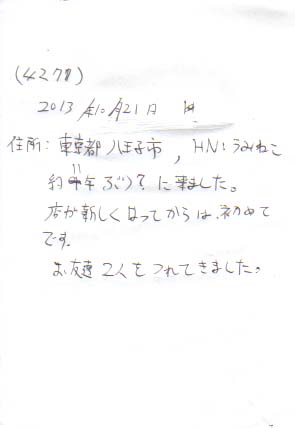 (4271)
2013年10月21日
住所: 東京都八王子市, HN: うみねこ
約11年ぶり?に来ました。
店が新しくなってからは、初めて
です。
お友達2人をつれてきました。